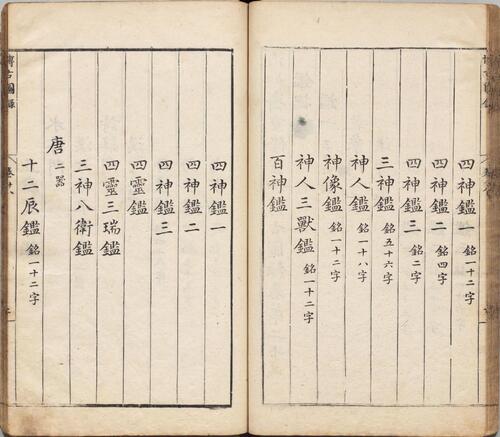 四神鑑一 銘一十二字
四神鑑二 銘四字
四神鑑三 銘二字
三神鑑 銘五十六字
神人鑑 銘一十八字
神像鑑 銘一十二字
神人三獸鑑 銘一十二字
百神鑑
四神鑑一
四神鑑二
四神鑑三
四靈鑑
四靈三瑞鑑
三神八衛鑑
唐 二器
十二辰鑑 銘一十二字
博古圖錄